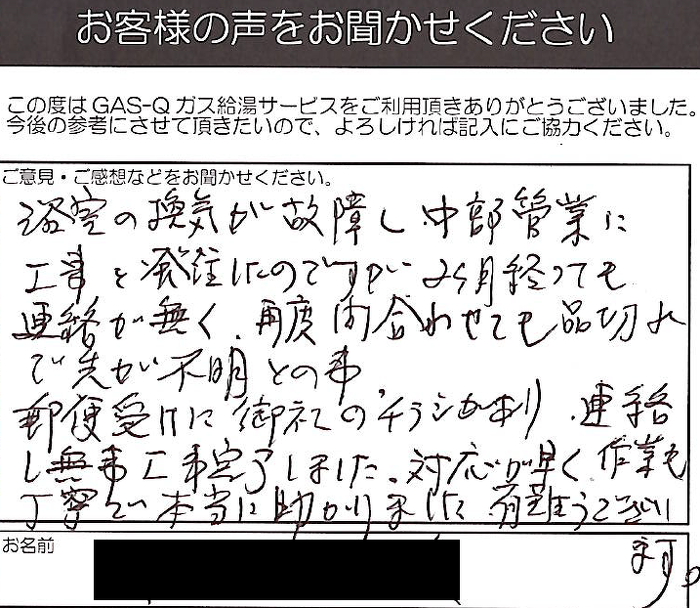 お客様の声をお聞かせください
この度はGAS-Qガス給湯サービスをご利用頂きありがとうございました。
今後の参考にさせて頂きたいので、よろしければ記入にご協力ください。
ご意見・ご感想などをお聞かせください。
浴室の換気が故障し中部管業に
工事を発注したのですが2ヶ月経っても
連絡が無く、再度問合わせても品切れ
で先が不明との事
郵便受けに御社のチラシがあり、連絡
し無事工事完了しました。対応が早く、作業も
丁寧で本当に助かりました。有難うござい
ます。
お名前